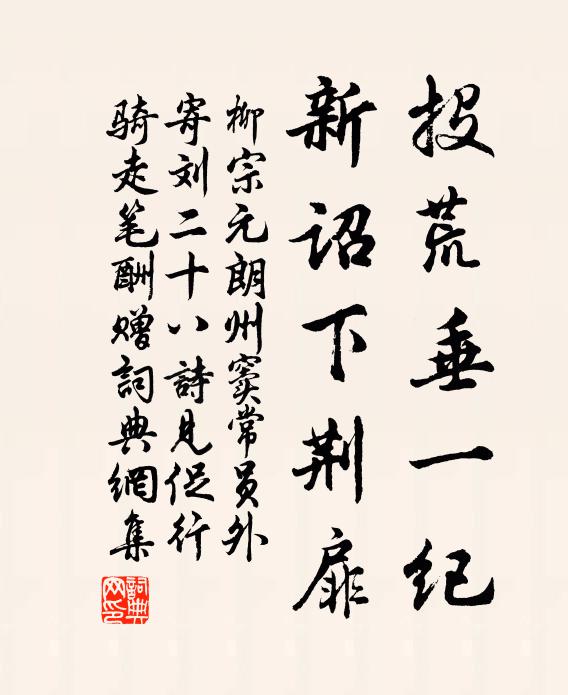 投荒垂一纪
新詔下荆扉
柳宗元朗州窦常员外
寄刘二十八詩見促行
骑走笔酬赠詞典網集
詞典网印